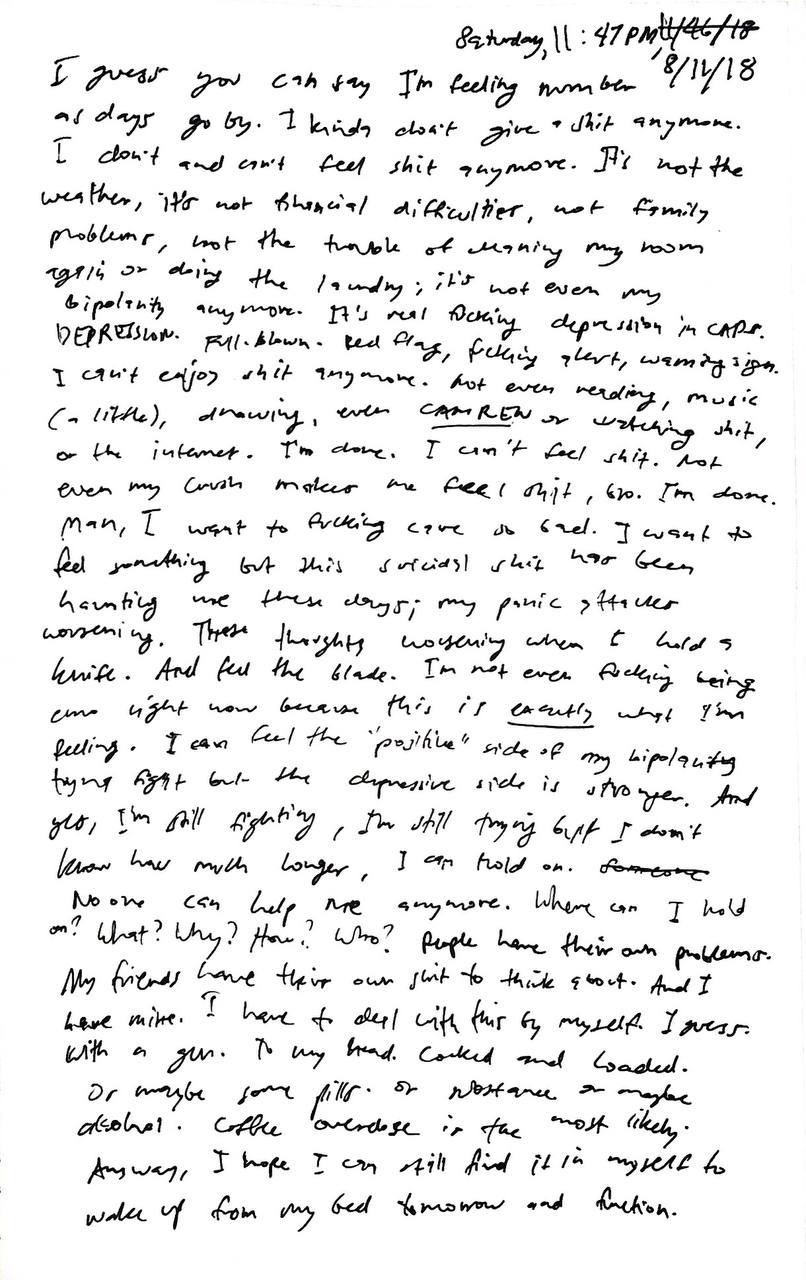 Saturday, 11:47 PM, 8/11/18
I guess you can say I'm feeling number
as days go by. I kinda don't give a shit anymore.
I don't and can't feel shit anymore. It's not the
weather, it's not financial difficulties, not family
problems, not the trouble of cleaning my room
again or doing the laundry; it's not even my
bipolarity anymore. It's real fucking depression in CAPS.
DEPRESSION. Full-blown. Red flag, fcking alert, warning sign.
I can't enjoy shit anymore. Not even reading, music
(a little), drawing, even CAMREN or watching shit,
or the internet. I'm done. I can't feel shit. Not
even my crush makes me feel shit, bro. I'm done.
Man, I want to fucking care so bad. I want to
feel something but this suicidal shit has been
haunting me these days; my panic attacks
worsening. These thoughts worsening when I hold a
knife. And feel the blade. I'm not even fucking being
emo right now because this is exactly what I'm
feeling. I can feel the "positive" side of my bipolarity
trying fight but the depressive side is stronger. And
yes, I'm still fighting, I'm still trying but I don't
know how much longer, I can hold on. Someone
No one can help me anymore. Where can I hold
on? What? Why? How? Who? People have their own problems.
My friends have their own shit to think about. And I
have mine. I have to deal with this by myself. I guess.
With a gun. To my head. Cocked and loaded.
Or maybe some pills. or substance or maybe
alcohol. Coffee overdose is the most likely.
Anyway, I hope I can still find it in myself to
wake up from my bed tomorrow and function.